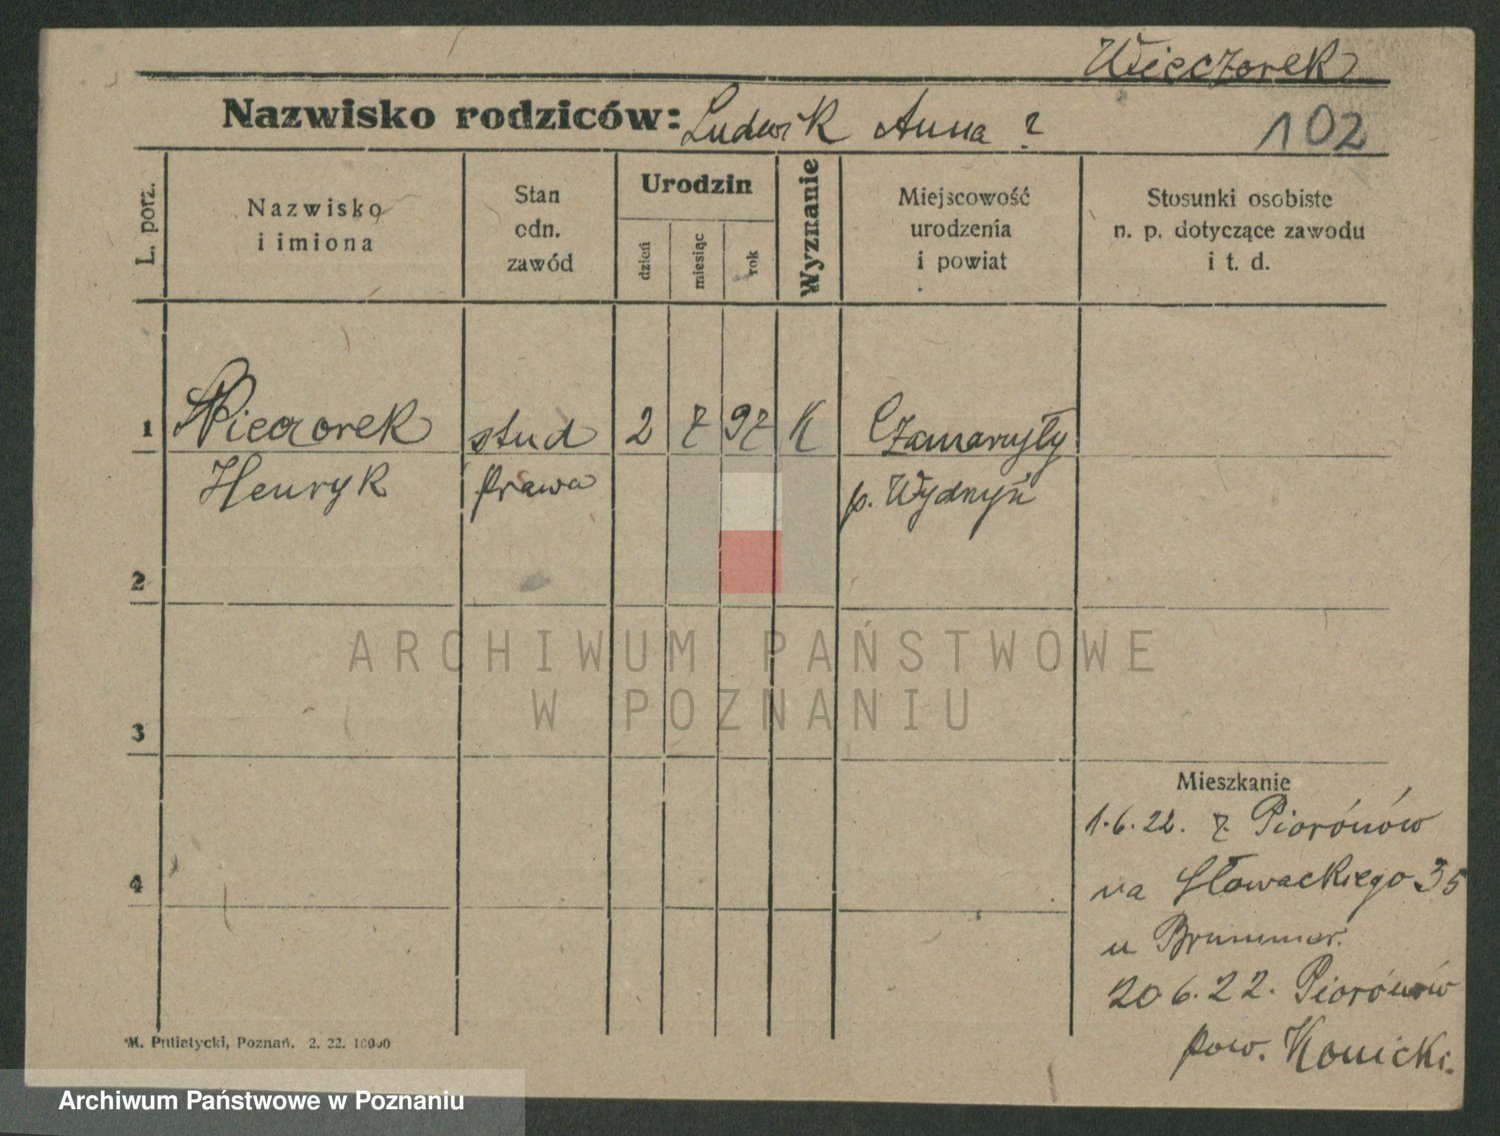 Wieczorek
Nazwisko rodziców: Ludwik Anna ?
102
L. porz.
Nazwisko
i imiona
Stan
odn.
zawód
Urodzin
dzień
miesiąc
rok
Wyznanie
Miejscowość
urodzenia
i powiat
Stosunki osobiste
n. p. dotyczące zawodu
i t. d.
1 Wieczorek stud 2 7 97 K Czamaryły
Henryk prawa p. Wydnyń
2
ARCHIWUM PAŃSTWOWE
W POZNANIU
3
Mieszkanie
1.6.22. z Piorónów
na Słowackiego 35
4
u Brummer.
20 6.22. Piorónów
pow. Konicki.
M. Putiatycki, Poznań. 2. 22. 10000
Archiwum Państwowe w Poznaniu